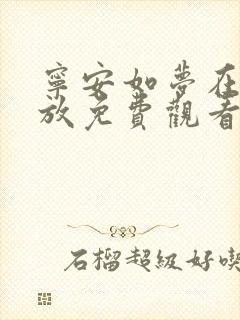 寧安如夢在
放免費觀看
石榴超級好喫